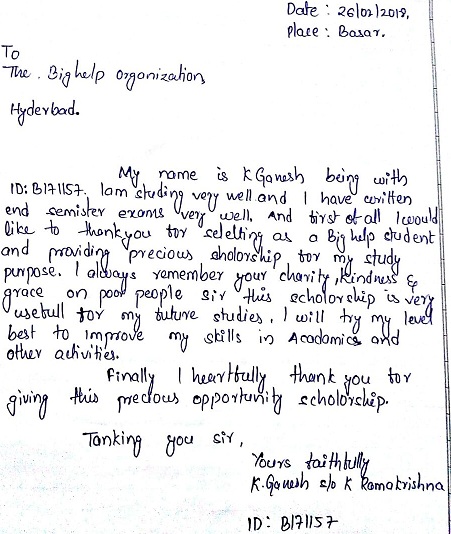 Date : 26/02/2018,
place : Basar.
To
The . Big help organization,
Hyderbad.
My name is K Ganesh being with
ID: B171157. Iam studing very well and I have written
end semister exams very well. And first of all I would
like to thankyou for seletting as a Big help student
and providing precious sholorship for my study
purpose. I always remember your charity, Kindness &
grace on poor people sir this scholorship is very
usefull for my future studies. I will try my level
best to improve my skills in Acadamics and
other activities.
Finally I heartfully thank you for
giving this precious opportunity scholorship.
Tanking you sir,
Yours faithfully
K. Ganesh s/o K Ramakrishna
ID: B171157